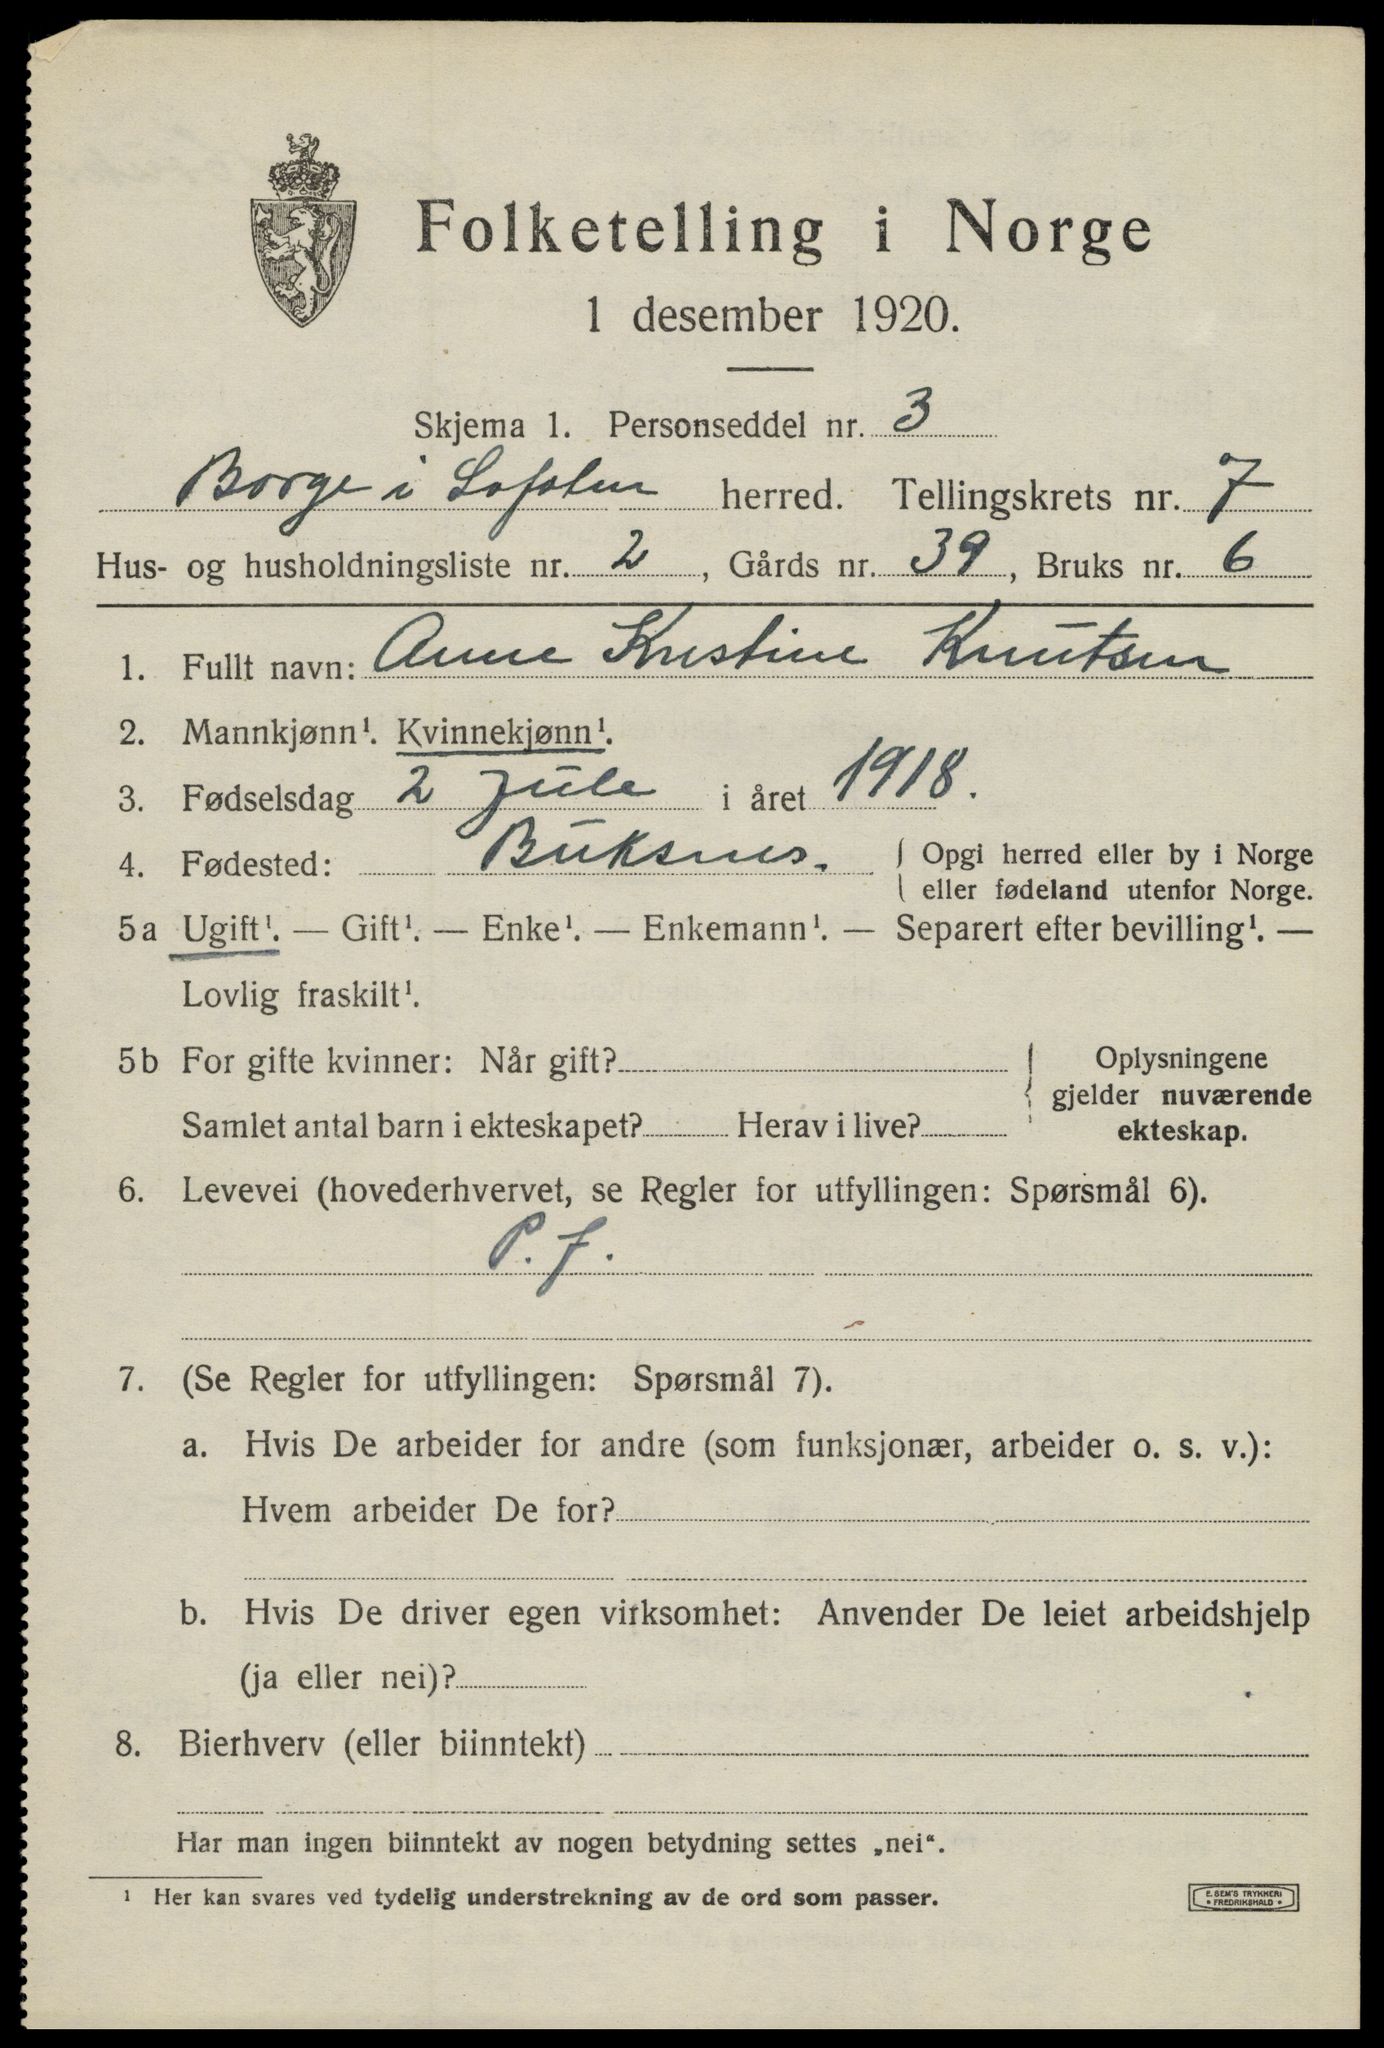 Folketelling i Norge
1 desember 1920.
Skjema 1. Personseddel nr. 3
Borge i Lofoten herred. Tellingskrets nr. 7
Hus- og husholdningsliste nr. 2, Gårds nr. 39, Bruks nr. 6
1. Fullt navn: Anne Kristine Knutsen
2. Mannkjønn¹. Kvinnekjønn¹.
3. Fødselsdag 2 Jule i året 1918.
4. Fødested: Buksnes. { Opgi herred eller by i Norge
eller fødeland utenfor Norge.
5a Ugift¹. — Gift¹. — Enke¹. — Enkemann¹. — Separert efter bevilling¹. —
Lovlig fraskilt¹.
5b For gifte kvinner: Når gift? { Oplysningene
gjelder nuværende
Samlet antal barn i ekteskapet? Herav i live? ekteskap.
6. Levevei (hovederhvervet, se Regler for utfyllingen: Spørsmål 6).
P. f.
7. (Se Regler for utfyllingen: Spørsmål 7).
a. Hvis De arbeider for andre (som funksjonær, arbeider o. s. v.):
Hvem arbeider De for?
b. Hvis De driver egen virksomhet: Anvender De leiet arbeidshjelp
(ja eller nei)?
8. Bierhverv (eller biinntekt)
Har man ingen biinntekt av nogen betydning settes „nei“.
¹ Her kan svares ved tydelig understrekning av de ord som passer.
E. SEM'S TRYKKERI
• FREDRIKSHALD •